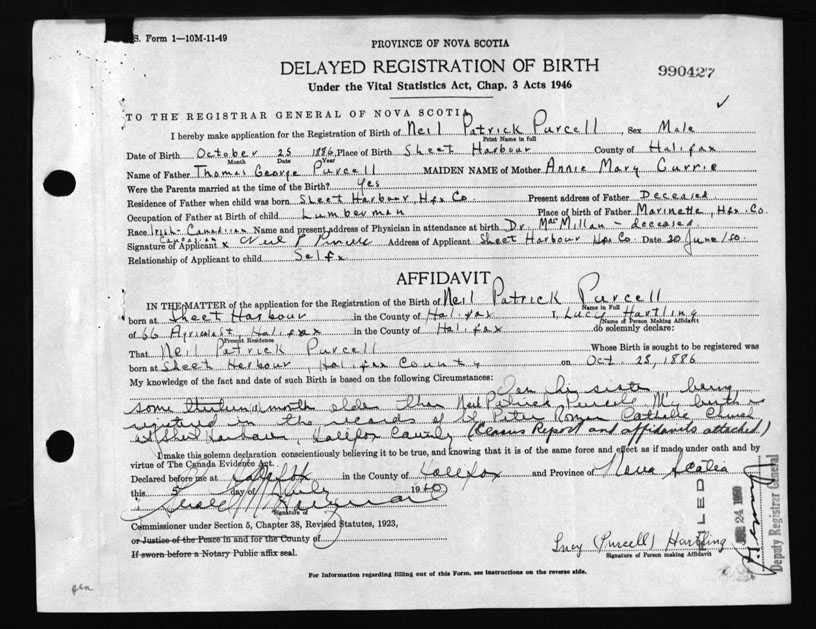 S. Form 1—10M-11-49
PROVINCE OF NOVA SCOTIA
DELAYED REGISTRATION OF BIRTH
990427
Under the Vital Statistics Act, Chap. 3 Acts 1946
TO THE REGISTRAR GENERAL OF NOVA SCOTIA
I hereby make application for the Registration of Birth of Neil Patrick Purcell, Sex Male
Print Name in full
Date of Birth October 25 1886, Place of Birth Sheet Harbour County of Halifax
Month Date Year
Name of Father Thomas George Purcell MAIDEN NAME of Mother Annie Mary Currie
Were the Parents married at the time of the Birth? Yes
Residence of Father when child was born Sheet Harbour, Hfx Co. Present address of Father Deceased
Occupation of Father at Birth of child Lumberman Place of birth of Father Marinette, Hfx Co.
Race Irish-Canadian Name and present address of Physician in attendance at birth Dr. MacMillan - deceased
Caucasian
Signature of Applicant x Neil P Purcell Address of Applicant Sheet Harbour Hfx Co. Date 20 June/50.
Relationship of Applicant to child Self x
AFFIDAVIT
IN THE MATTER of the application for the Registration of the Birth of Neil Patrick Purcell
Name in Full
born at Sheet Harbour in the County of Halifax I, Lucy Hartling
Name of Person Making Affidavit
of 66 Agricola St, Halifax in the County of Halifax do solemnly declare:
Present Residence
That Neil Patrick Purcell Whose Birth is sought to be registered was
born at Sheet Harbour, Halifax County on Oct. 25, 1886
My knowledge of the fact and date of such Birth is based on the following Circumstances:
I am his sister being
some months older than Neil Patrick Purcell My birth is
registered in the records of St Peter Roman Catholic Church
at Sheet Harbour, Halifax County (Census Report and affidavits attached)
I make this solemn declaration conscientiously believing it to be true, and knowing that it is of the same force and effect as if made under oath and by
virtue of The Canada Evidence Act.
Declared before me at Halifax in the County of Halifax and Province of Nova Scotia
this 5 day of July 1950
Signature of
Commissioner under Section 5, Chapter 38, Revised Statutes, 1923,
or Justice of the Peace in and for the County of
If sworn before a Notary Public affix seal.
Lucy (Purcell) Hartling
Signature of Person making Affidavit
FILED
24 1950
Deputy Registrar General
For Information regarding filling out of this Form, see Instructions on the reverse side.